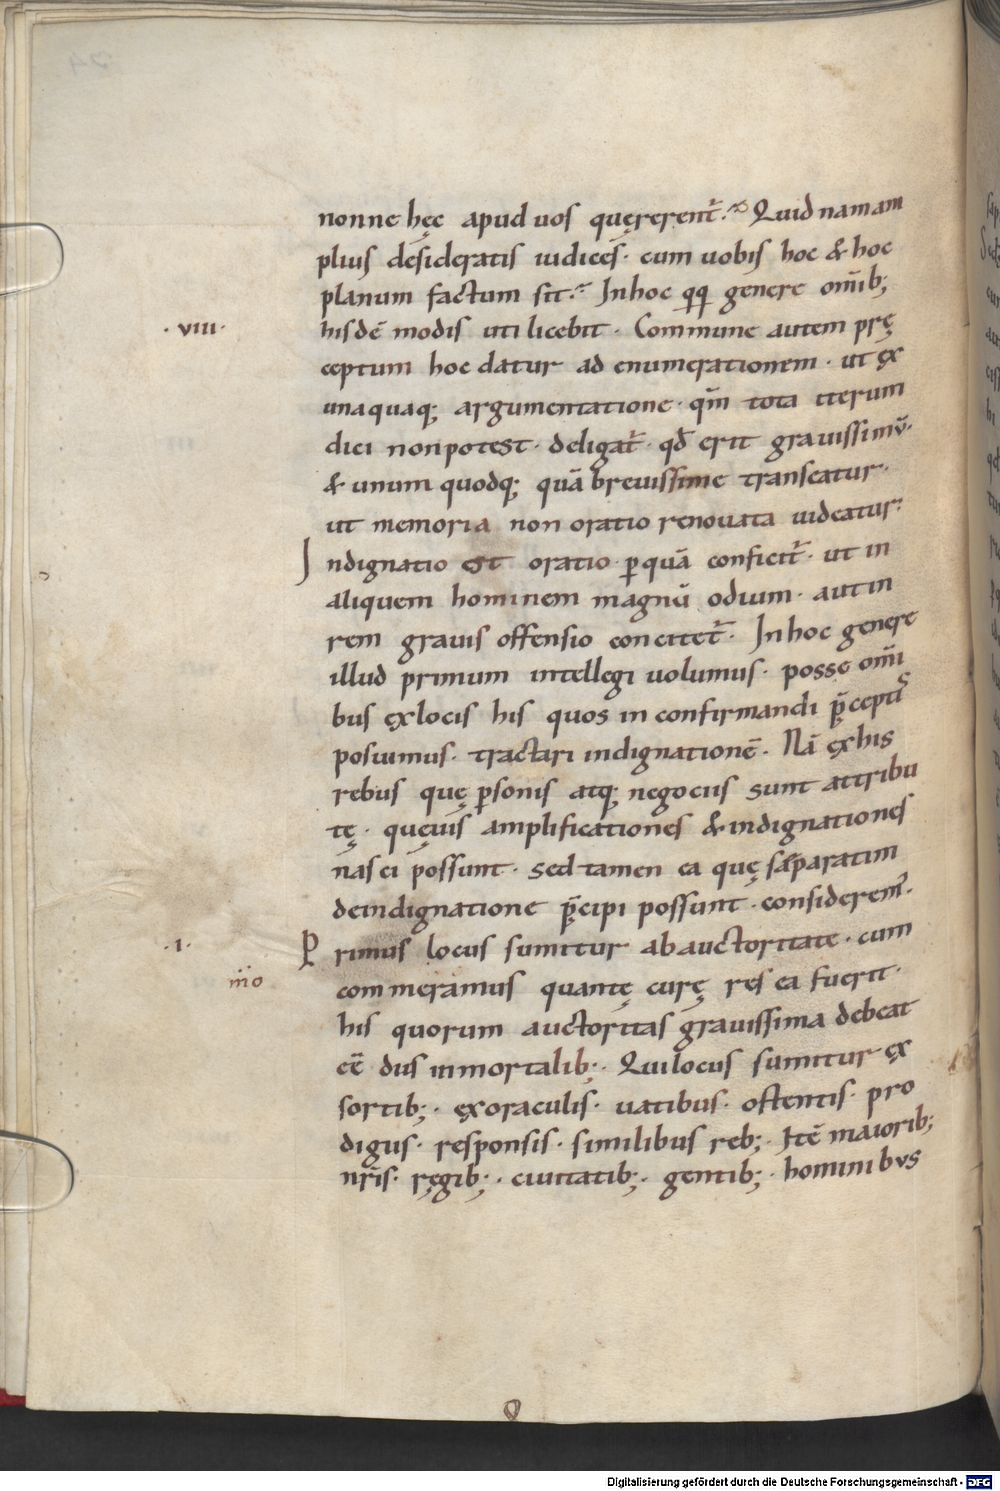 nonne hęc apud uos quęrerent̄.~ Quid nam am
plius desideratis iudices· cum uobis hoc & hoc
planum factum sit.~ In hoc qq; genere om̄ib;
·VIII· hisdē modis uti licebit· Commune autem prę
ceptum hoc datur ad enumerationem· ut ex
unaquaq; argumentatione· qm̄ tota iterum
dici non potest· deligat̄· qd̄ erit grauissimū·
& unum quodq; quā breuissime transeatur·
ut memoria non oratio renouata uideatur·
Indignatio est oratio p quā conficit̄· ut in
aliquem hominem magnū odium· aut in
rem grauis offensio concitet̄· In hoc genere
illud primum intellegi uolumus· posse om̄i
bus ęx locis his quos in confirmandi p̄cepti
posuimus· tractari indignationē· Nā ęx his
rebus quę psonis atq; negociis sunt attribu
tę· quęuis amplificationes & indignationes
nasci possunt· sed tamen ea quę separatim
de indignatione p̄cipi possunt· considerem̄·
·I· Primus locus sumitur ab auctoritate· cum
commeramus quantę curę res ea fuerit·
m̈o
his quorum auctoritas grauissima debeat
eē dus inmortalib;· Qui locus sumitur ęx
sortib;· ęx oraculis· uatibus· ostentis· pro
digiis· responsis· similibus reb;· Itē maiorib;
nr̄is· ręgib;· ciuitatib;· gentib;· hominibus
Digitalisierung gefördert durch die Deutsche Forschungsgemeinschaft - DFG